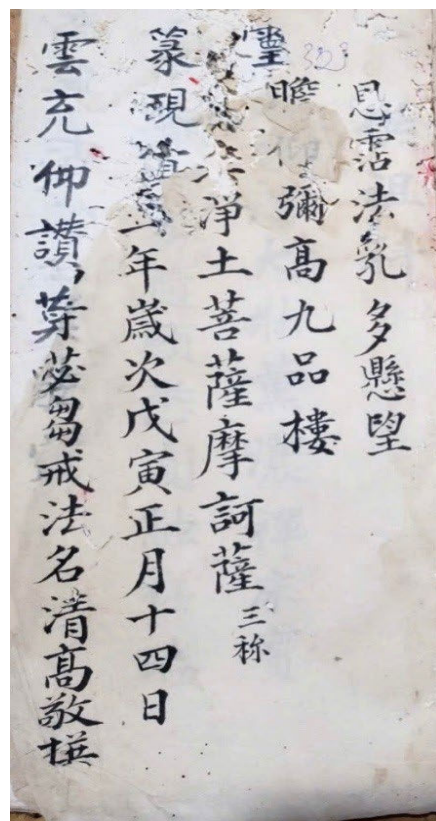 恩霑法乳多懸望
瞻仰彌高九品樓
淨土菩薩摩訶薩三称
年歲次戊寅正月十四日
雲充仰讚苾芻戒法名清高敬撰